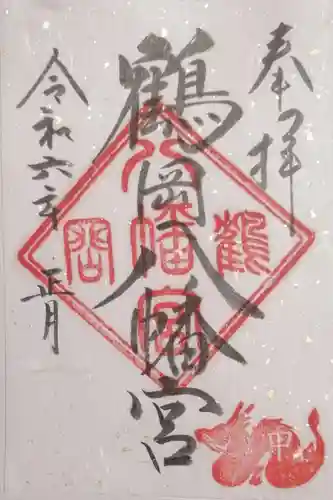 奉拝
鶴岡八幡宮
令和六年 正月
鶴
八幡宮
岡